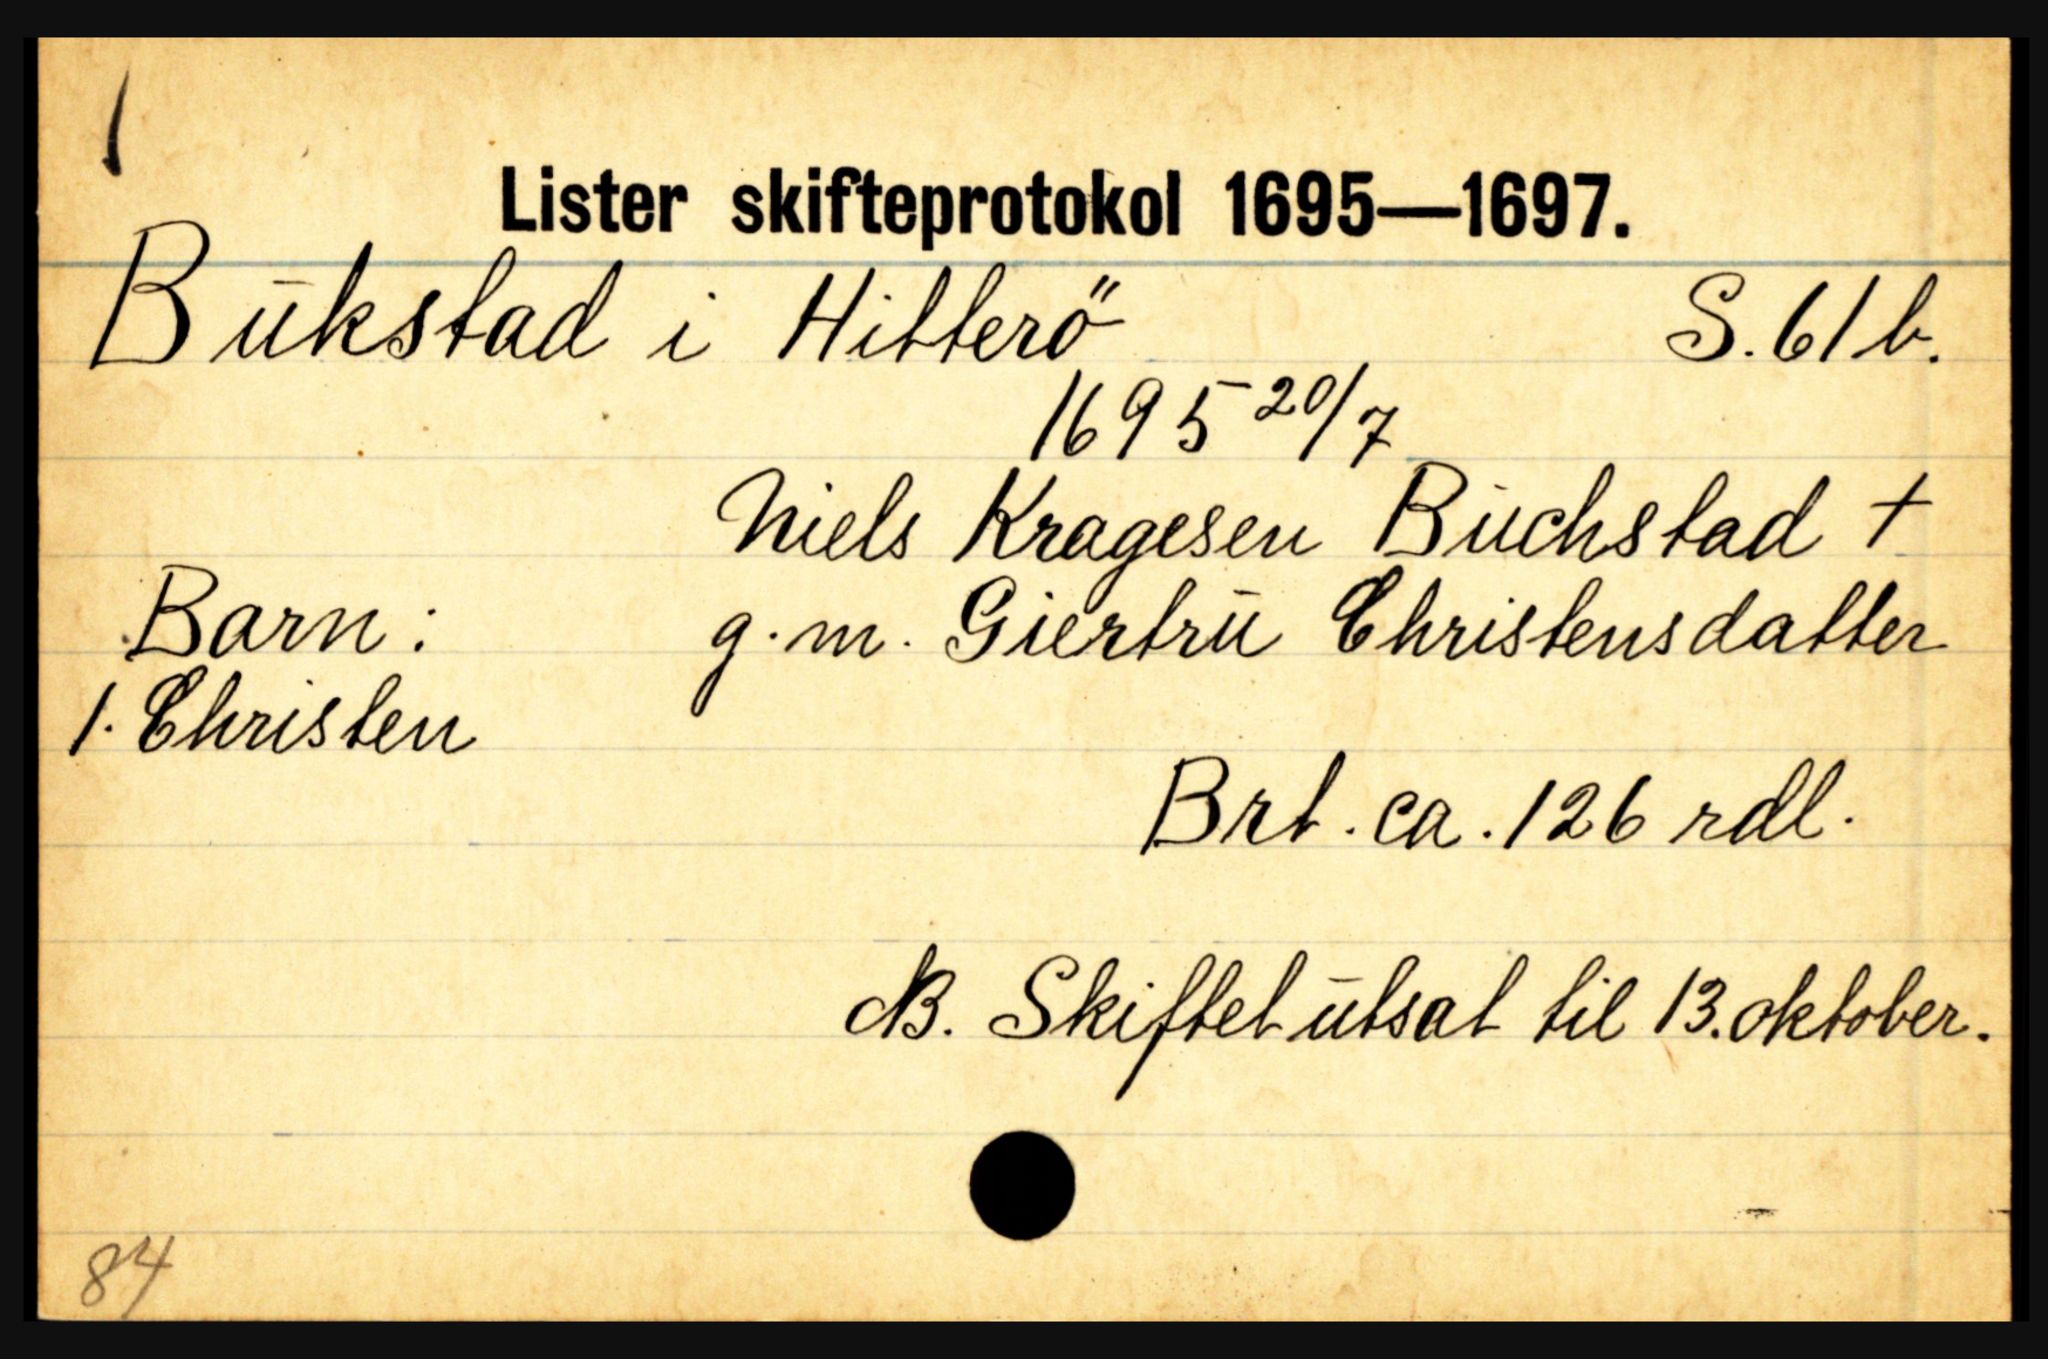 1
Lister skifteprotokol 1695—1697.
Būkstad i Hitterö S. 61 b.
1695 20/7
Niels Kragesen Būchstad †
Barn: g. m. Giertrū Christensdatter
1. Christen
Brt. ca. 126 rdl.
NB. Skiftet ūtsat til 13. oktober.
84